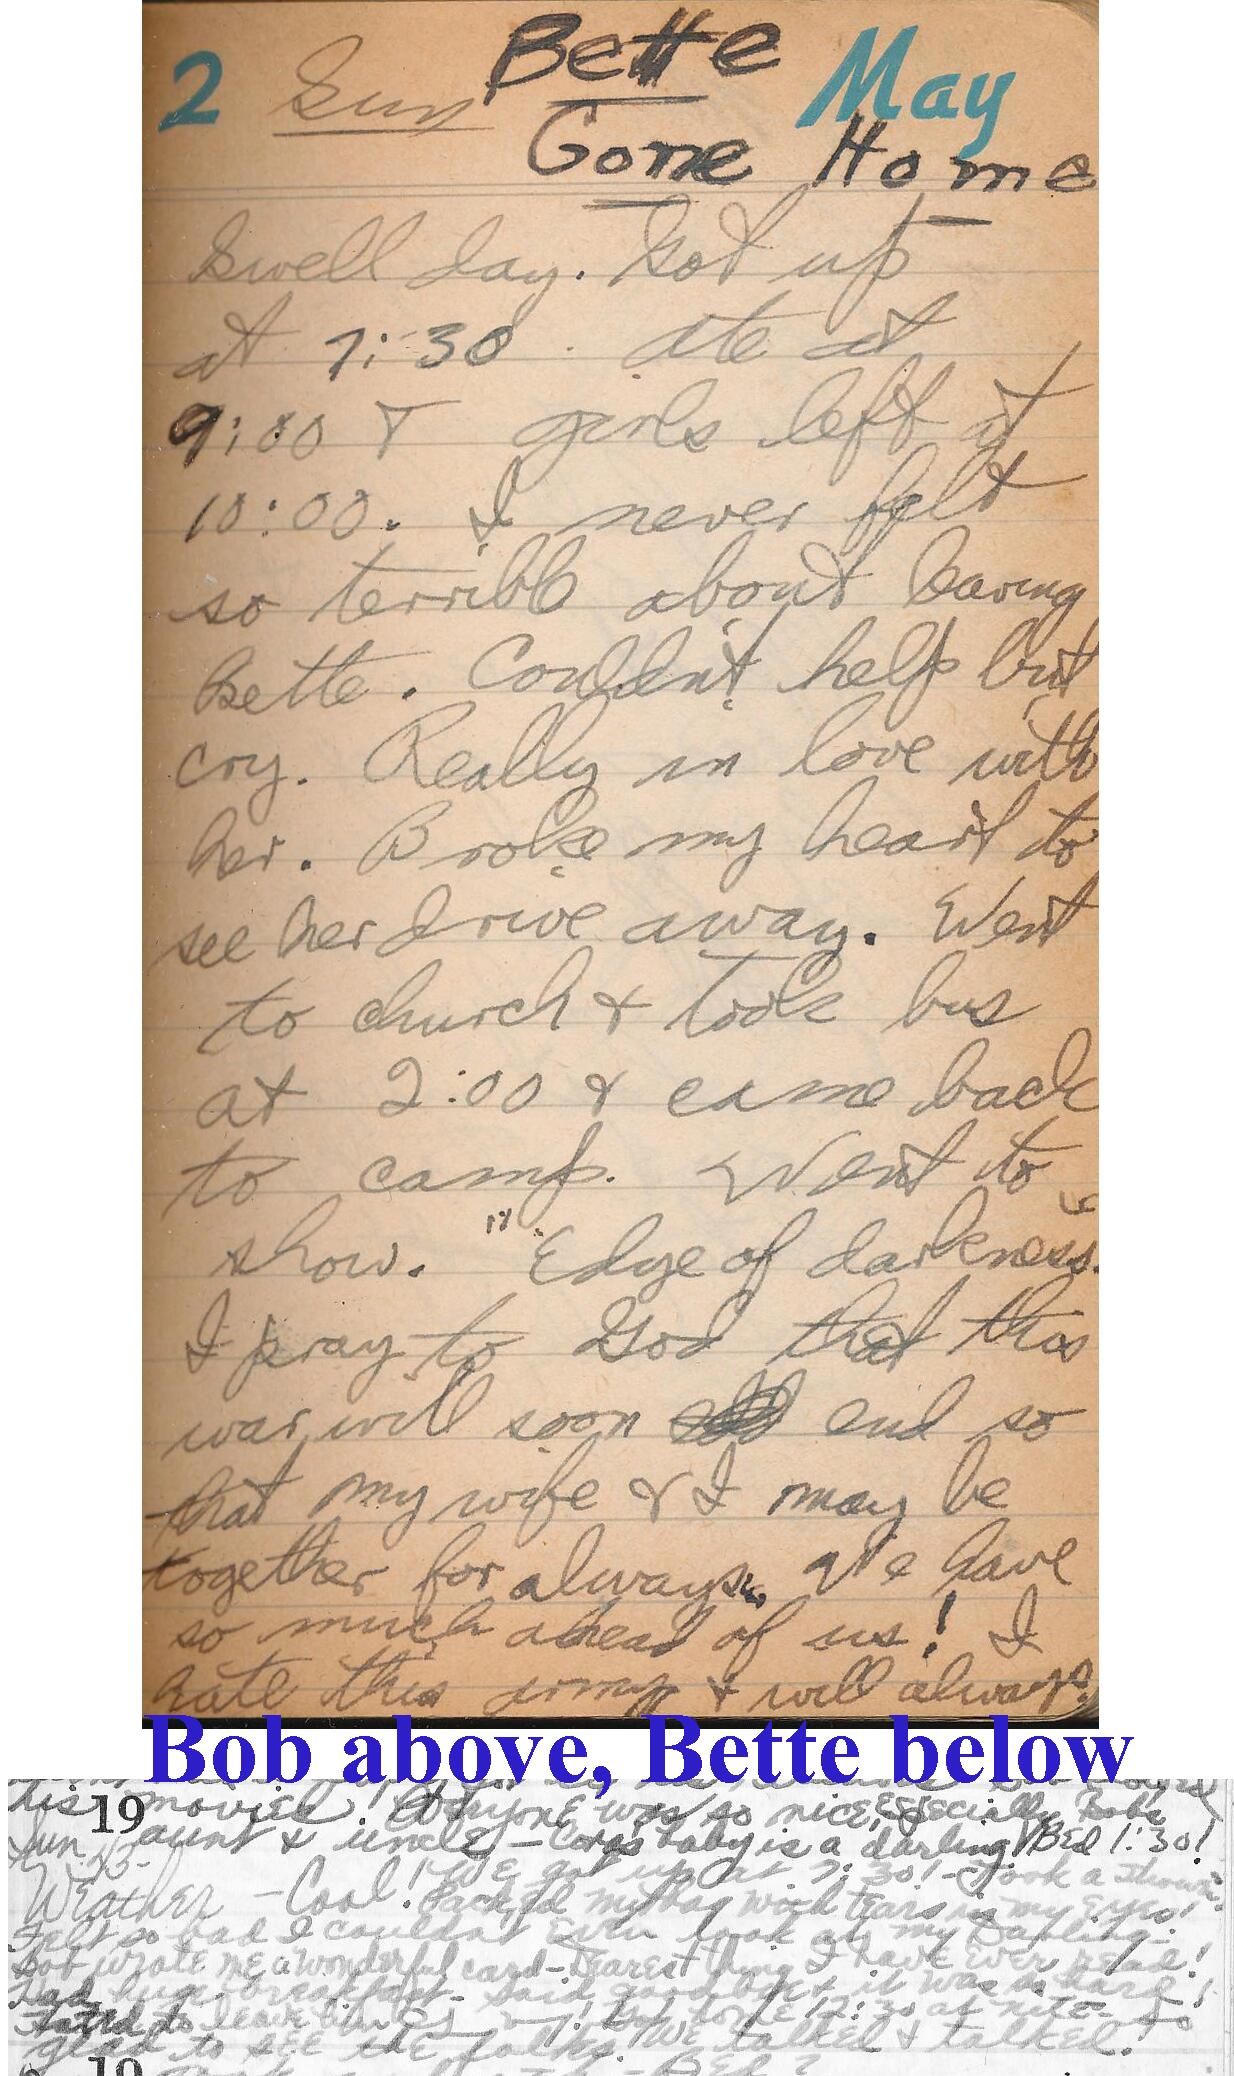 2 Sun Bette May
Gone Home
Swell day. Got up
at 7:30. ate at
9:00 & girls left at
10:00. I never felt
so terrible about leaving
Bette. Couldn't help but
cry. Really in love with
her. Broke my heart to
see her drive away. Went
to church & took bus
at 2:00 & came back
to camp. Went to
show. "Edge of darkness.
I pray to God that this
war will soon end so
that my wife & I may be
together for always. We have
so much ahead of us! I
hate this army & will always.
Bob above, Bette below
his movies! Everyone was so nice, especially Bobs
19
aunt & uncle - Coras baby is a darling! Bed 1:30!
Sun. We got up at 7:30! - Took a
Weather - Cool! Packed my bag with tears in my eyes!
Felt so bad I couldn't even look at my Darling.
Bob wrote me a wonderful card - Dearest thing I have ever read!
Had huge breakfast - said goodbye & it was so hard!
Hated to leave him. Got home 12:30 at nite - So
glad to see the folks. We talked & talked!
19 Bed ?